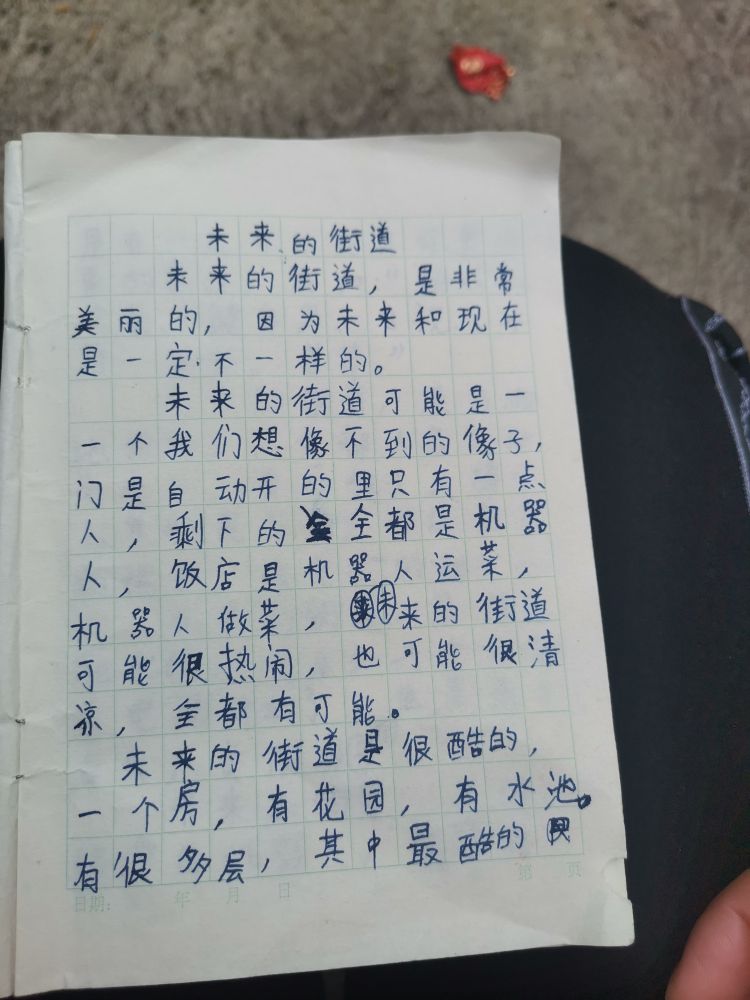 未来的街道
未来的街道，是非常
美丽的，因为未来和现在
是一定不一样的。
未来的街道可能是一
一个我们想像不到的像子，
门是自动开的里只有一点
人，剩下的全都是机器
人，饭店是机器人运菜，
机器人做菜，未来的街道
可能很热闹，也可能很清
凉，全都有可能。
未来的街道是很酷的，
一个房，有花园，有水池。
有很多层，其中最酷的
日期： 年 月 日 第 页